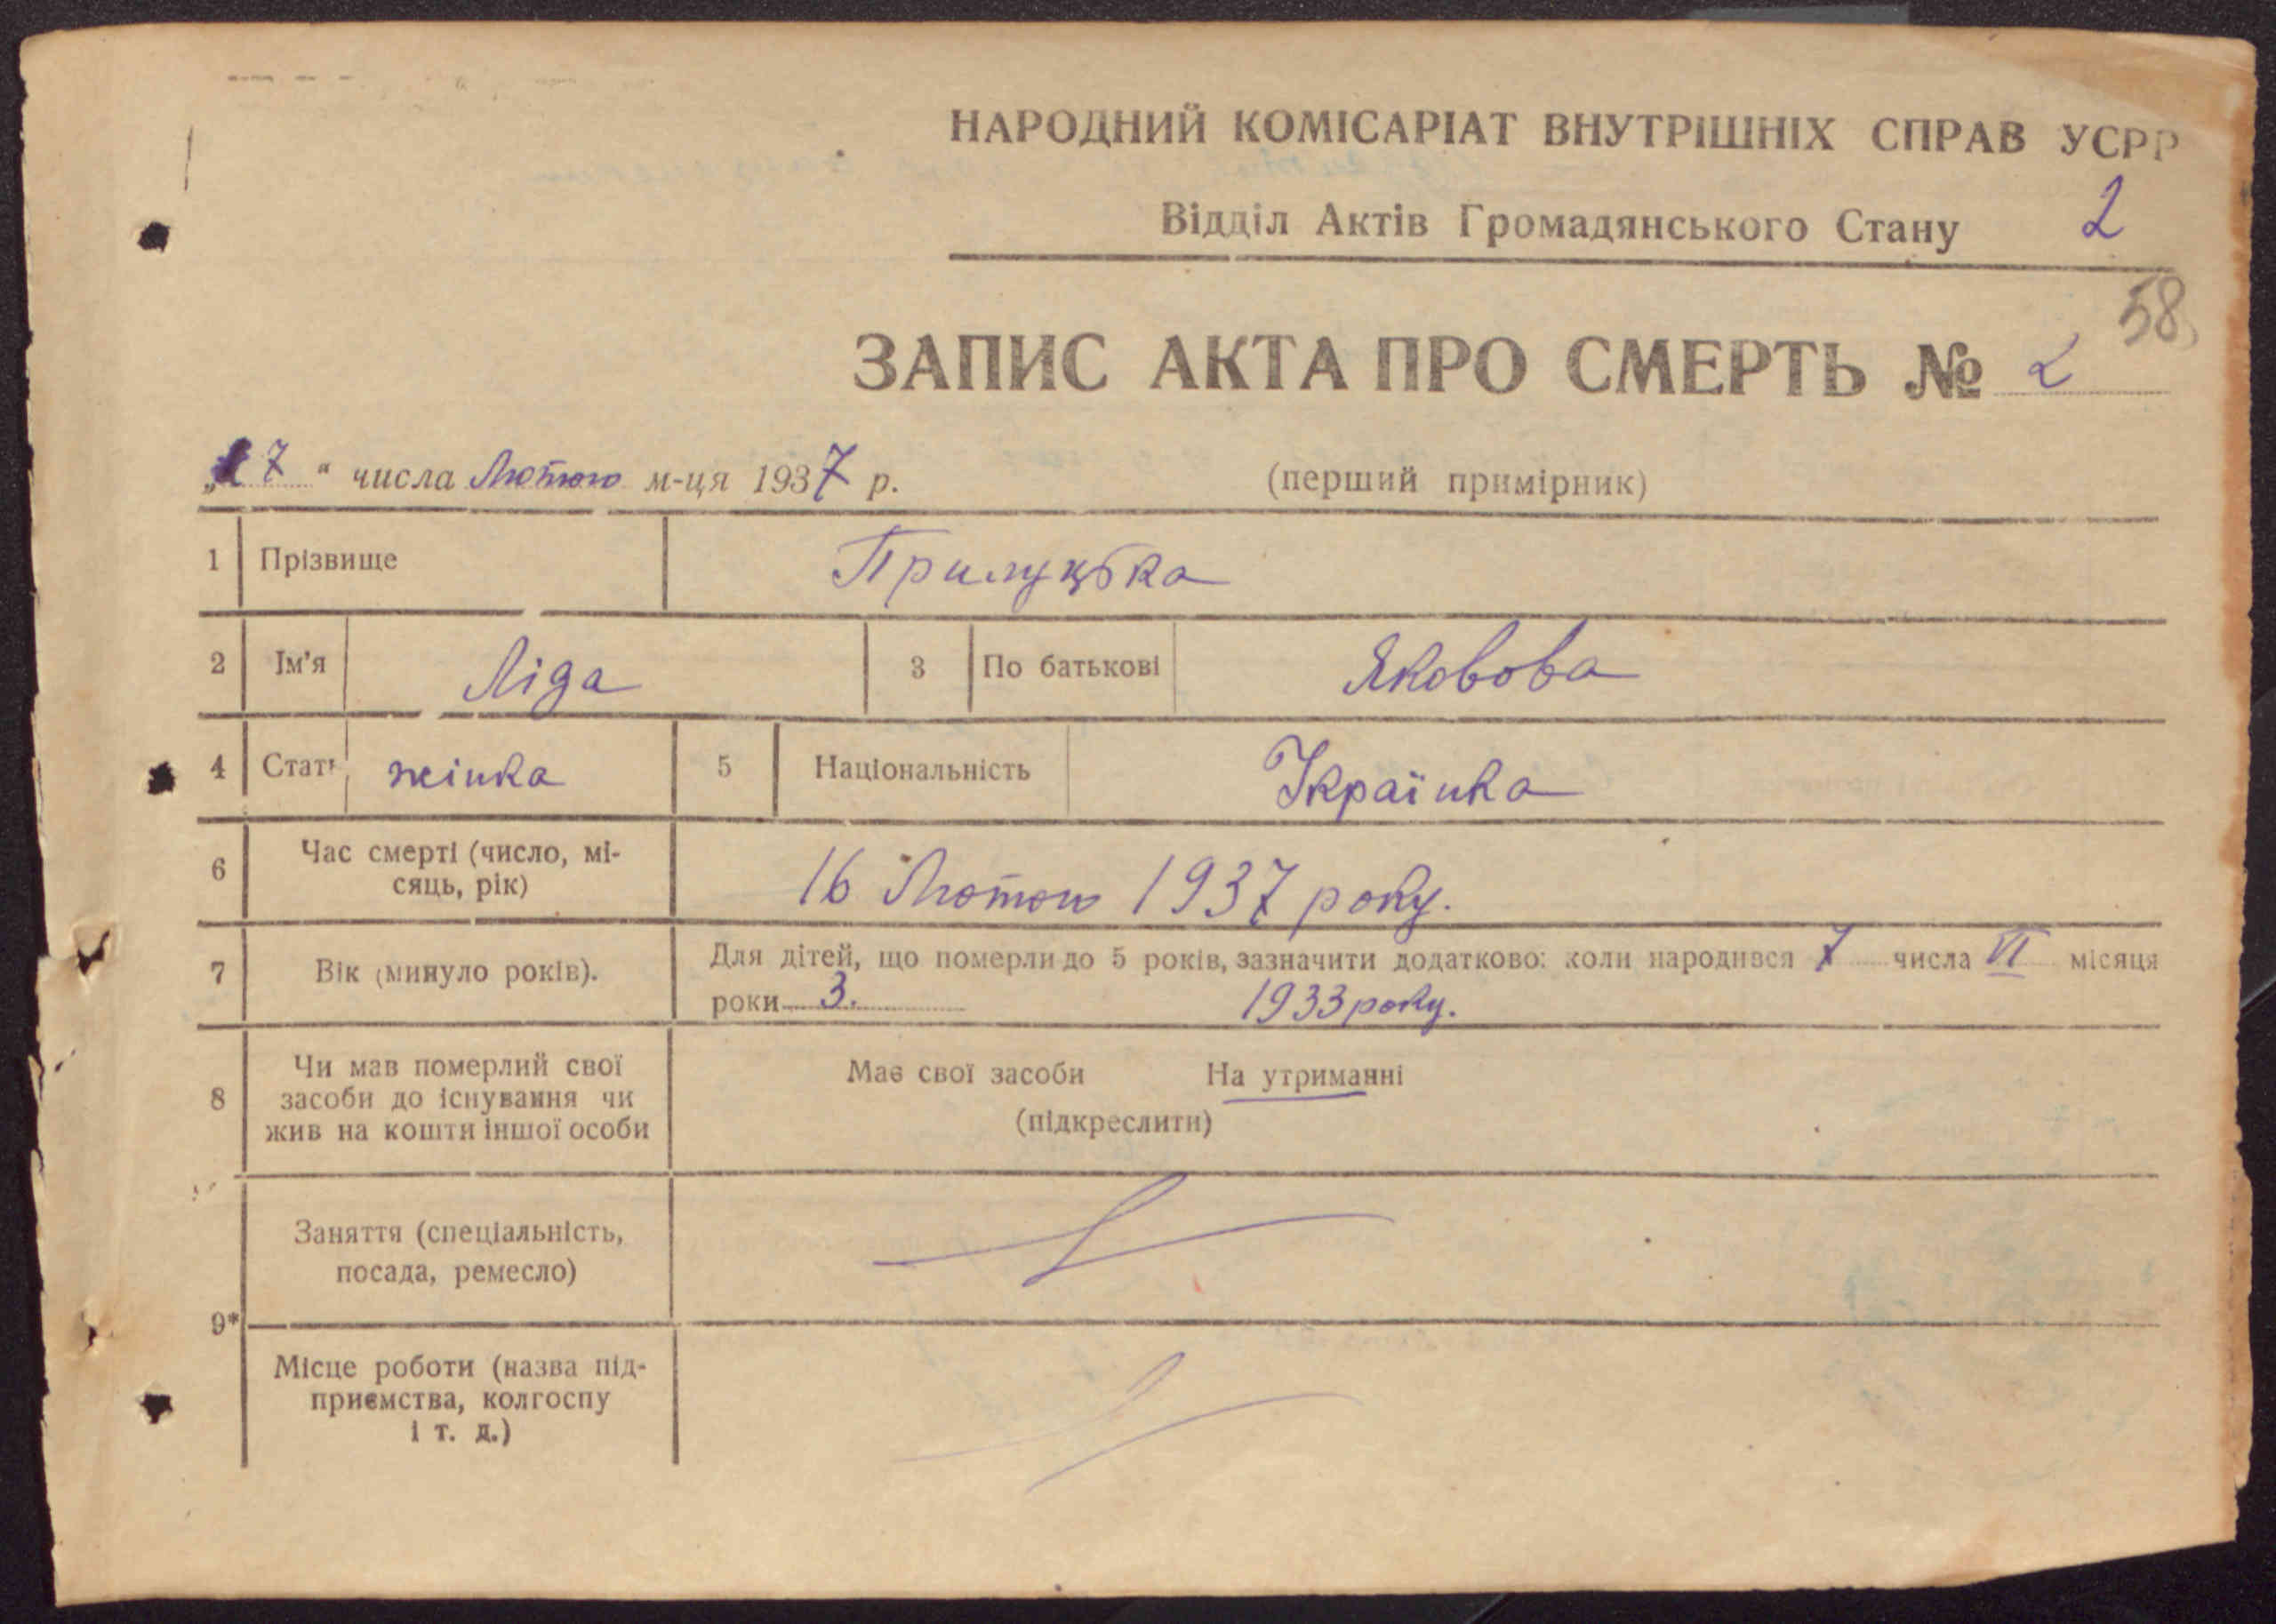 НАРОДНИЙ КОМІСАРІАТ ВНУТРІШНІХ СПРАВ УСРР
Відділ Актів Громадянського Стану 2
58
ЗАПИС АКТА ПРО СМЕРТЬ № 2
„17" числа Лютого м-ця 1937 р. (перший примірник)
1 Прізвище Прилуцька
2 Ім'я Ліда 3 По батькові Яковова
4 Стать жінка 5 Національність Українка
6 Час смерті (число, мі-
сяць, рік) 16 Лютого 1937 року.
7 Вік (минуло років). Для дітей, що померли до 5 років, зазначити додатково: коли народився 7 числа VI місяця
роки 3. 1933 року.
8 Чи мав померлий свої
засоби до існування чи
жив на кошти іншої особи
Має свої засоби На утриманні
(підкреслити)
9*
Заняття (спеціальність,
посада, ремесло)
Місце роботи (назва під-
приємства, колгоспу
і т. д.)